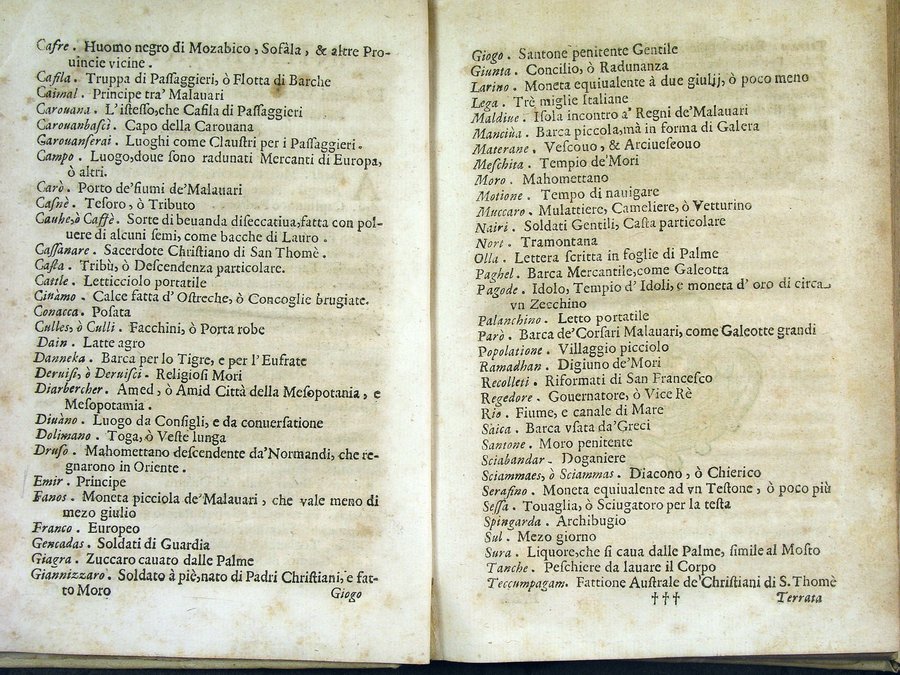 Cafre. Huomo negro di Mozabico, Sofàla, & altre Pro-
uincie vicine.
Cafila. Truppa di Paſſaggieri, ò Flotta di Barche
Caimal. Principe tra' Malauari
Carouana. L'iſteſſo,che Cafila di Paſſaggieri
Carouanbaſcì. Capo della Carouana
Garouanſerai. Luoghi come Clauſtri per i Paſſaggieri.
Campo. Luogo,doue ſono radunati Mercanti di Europa,
ò altri.
Carò. Porto de'fiumi de'Malauari
Caſnè. Teſoro, ò Tributo
Cauhe,ò Caffè. Sorte di beuanda diſeccatiua,fatta con pol-
uere di alcuni ſemi, come bacche di Lauro.
Caſſanare. Sacerdote Chriſtiano di San Thomè.
Caſta. Tribù, ò Deſcendenza particolare.
Cattle. Letticciolo portatile
Ciuàmo. Calce fatta d'Oſtreche, ò Concoglie brugiate.
Conacca. Poſata
Culles, ò Culli. Facchini, ò Porta robe
Dain. Latte agro
Danneka. Barca per lo Tigre, e per l'Eufrate
Deruiſi, ò Deruiſci. Religioſi Mori
Diarbercher. Amed, ò Amid Città della Meſopotania, e
Meſopotamia.
Diuàno. Luogo da Conſigli, e da conuerſatione
Dolimano. Toga, ò Veſte lunga
Druſo. Mahomettano deſcendente da'Normandi, che re-
gnarono in Oriente.
Emir. Principe
Fanos. Moneta picciola de'Malauari, che vale meno di
mezo giulio
Franco. Europeo
Gencadas. Soldati di Guardia
Giagra. Zuccaro cauato dalle Palme
Giannizzaro. Soldato à piè,nato di Padri Chriſtiani, e fat-
to Moro
Giogo
Giogo. Santone penitente Gentile
Giunta. Concilio, ò Radunanza
Larino. Moneta equiualente à due giulij, ò poco meno
Lega. Trè miglie Italiane
Maldiue. Iſola incontro a' Regni de'Malauari
Manciùa. Barca piccola,mà in forma di Galera
Materane. Veſcouo, & Arciueſeouo
Meſchita. Tempio de'Mori
Moro. Mahomettano
Motione. Tempo di nauigare
Muccaro. Mulattiere, Cameliere, ò Vetturino
Nairi. Soldati Gentili, Caſta particolare
Nort. Tramontana
Olla. Lettera ſcritta in foglie di Palme
Paghel. Barca Mercantile,come Galeotta
Pagode. Idolo, Tempio d'Idoli, e moneta d'oro di circa
vn Zecchino
Palanchino. Letto portatile
Parò. Barca de'Corſari Malauari, come Galeotte grandi
Popolatione. Villaggio picciolo
Ramadhan. Digiuno de'Mori
Recolleti. Riformati di San Franceſco
Regedore. Gouernatore, ò Vice Rè
Rio. Fiume, e canale di Mare
Saica. Barca vſata da'Greci
Santone. Moro penitente
Sciabandar. Doganiere
Sciammaes, ò Sciammas. Diacono, ò Chierico
Serafino. Moneta equiualente ad vn Teſtone, ò poco più
Seſſa. Touaglia, ò Sciugatoro per la teſta
Spingarda. Archibugio
Sul. Mezo giorno
Sura. Liquore,che ſi caua dalle Palme, ſimile al Moſto
Tanche. Peſchiere da lauare il Corpo
Teccumpagam. Fattione Auſtrale de'Chriſtiani di S.Thomè
††† Terrata